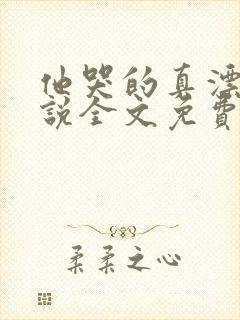 他哭的真漂
說全文免費
柔柔之心